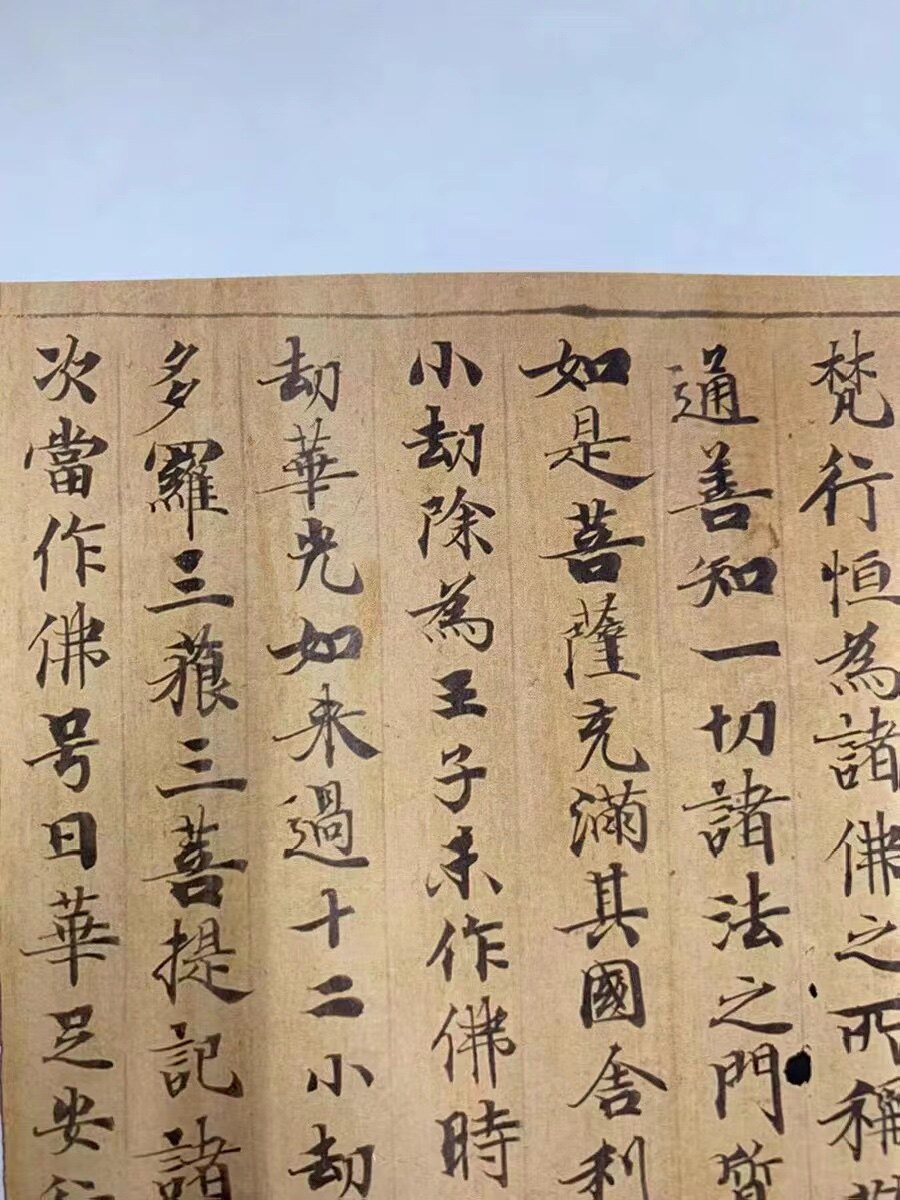 梵行恒為諸佛之所稱
通善知一切諸法之門質
如是菩薩充滿其國舍利
小劫除為王子未作佛時
劫華光如来過十二小劫
多羅三藐三菩提記諸
次當作佛号曰華足安行